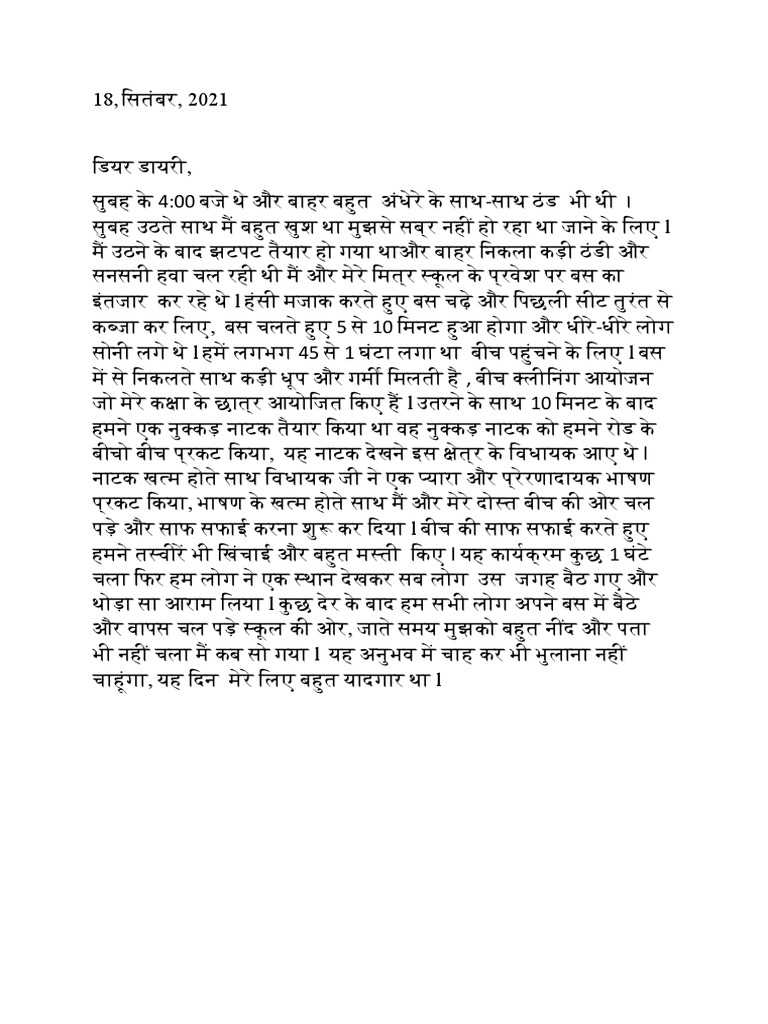 18,सितंबर, 2021
डियर डायरी,
सुबह के 4:00 बजे थे और बाहर बहुत  अंधेरे के साथ-साथ ठंड  भी थी ।
सुबह उठते साथ मैं बहुत खुश था मुझसे सब्र नहीं हो रहा था जाने के लिए l
मैं उठने के बाद झटपट तैयार हो गया थाऔर बाहर निकला कड़ी ठंडी और
सनसनी हवा चल रही थी मैं और मेरे मित्र स्कूल के प्रवेश पर बस का
इंतजार  कर रहे थे l हंसी मजाक करते हुए बस चढ़े और पिछली सीट तुरंत से
कब्जा कर लिए,  बस चलते हुए 5 से 10 मिनट हुआ होगा और धीरे-धीरे लोग
सोनी लगे थे l हमें लगभग 45 से 1 घंटा लगा था  बीच पहुंचने के लिए l बस
में से निकलते साथ कड़ी धूप और गर्मी मिलती है , बीच क्लीनिंग आयोजन
जो मेरे कक्षा के छात्र आयोजित किए हैं l उतरने के साथ 10 मिनट के बाद
हमने एक नुक्कड़ नाटक तैयार किया था वह नुक्कड़ नाटक को हमने रोड के
बीचो बीच प्रकट किया,  यह नाटक देखने इस क्षेत्र के विधायक आए थे l
नाटक खत्म होते साथ विधायक जी ने एक प्यारा और प्रेरणादायक भाषण
प्रकट किया, भाषण के खत्म होते साथ मैं और मेरे दोस्त बीच की ओर चल
पड़े और साफ सफाई करना शुरू कर दिया l बीच की साफ सफाई करते हुए
हमने तस्वीरें भी खिंचाई और बहुत मस्ती  किए l यह कार्यक्रम कुछ 1 घंटे
चला फिर हम लोग ने एक स्थान देखकर सब लोग  उस  जगह बैठ गए और
थोड़ा सा आराम लिया l कुछ देर के बाद हम सभी लोग अपने बस में बैठे
और वापस चल पड़े स्कूल की ओर, जाते समय मुझको बहुत नींद और पता
भी नहीं चला मैं कब सो गया l  यह अनुभव में चाह कर भी भुलाना नहीं
चाहूंगा, यह दिन  मेरे लिए बहुत यादगार था l